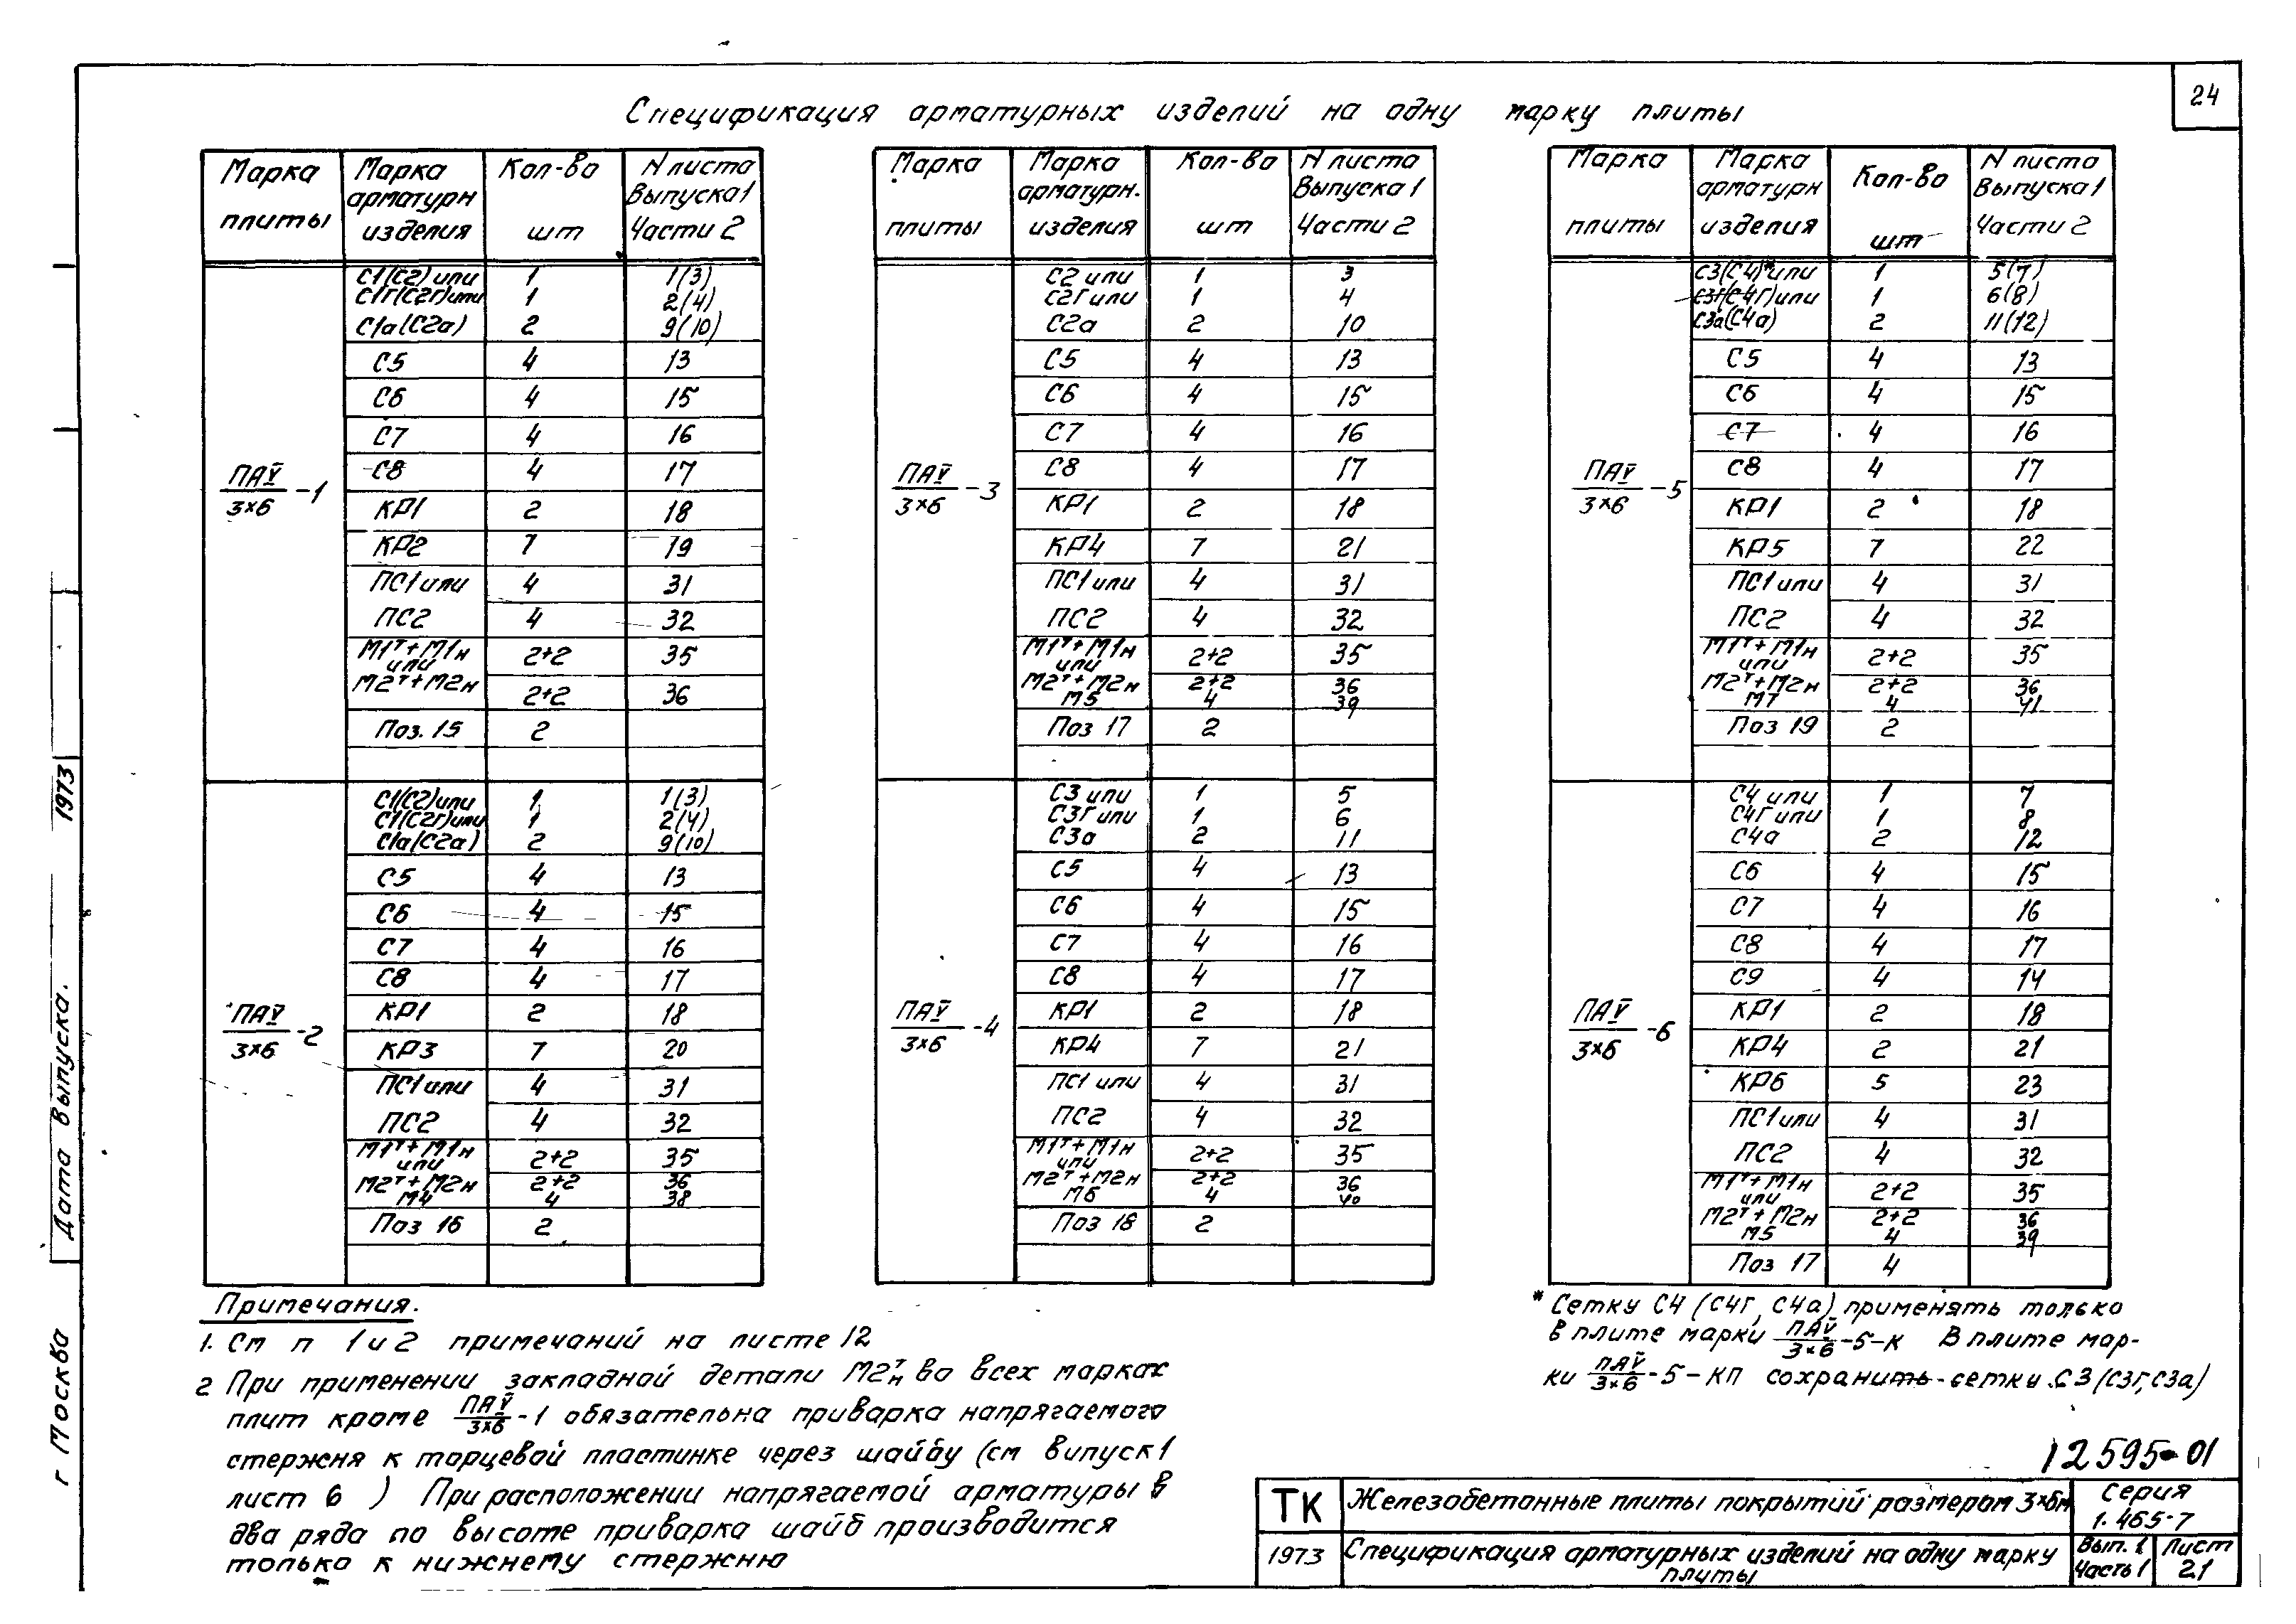 24
Спецификация арматурных изделий на одну марку плиты
Марка плиты | Марка арматурн изделия | Кол-во шт | N листа Выпуска 1 Части 2
ПАV/3×6 -1
С1(С2) или | 1 | 1(3)
С1г(С2г)или | 1 | 2(4)
С1а(С2а) | 2 | 9(10)
С5 | 4 | 13
С6 | 4 | 15
С7 | 4 | 16
С8 | 4 | 17
КР1 | 2 | 18
КР2 | 7 | 19
ПС1 или | 4 | 31
ПС2 | 4 | 32
М1т+М1н или | 2+2 | 35
М2т+М2н | 2+2 | 36
Поз. 15 | 2
ПАV/3×6 -2
С1(С2)или | 1 | 1(3)
С1(С2г)или | 1 | 2(4)
С1а(С2а) | 2 | 9(10)
С5 | 4 | 13
С6 | 4 | 15
С7 | 4 | 16
С8 | 4 | 17
КР1 | 2 | 18
КР3 | 7 | 20
ПС1 или | 4 | 31
ПС2 | 4 | 32
М1т+М1н или | 2+2 | 35
М2т+М2н | 2+2 | 36
М4 | 4 | 38
Поз 16 | 2
Марка плиты | Марка арматурн. изделия | Кол-во шт | N листа Выпуска 1 Части 2
ПАV/3×6 -3
С2 или | 1 | 3
С2г или | 1 | 4
С2а | 2 | 10
С5 | 4 | 13
С6 | 4 | 15
С7 | 4 | 16
С8 | 4 | 17
КР1 | 2 | 18
КР4 | 7 | 21
ПС1 или | 4 | 31
ПС2 | 4 | 32
М1т+М1н или | 2+2 | 35
М2т+М2н | 2+2 | 36
М5 | 4 | 39
Поз 17 | 2
ПАV/3×6 -4
С3 или | 1 | 5
С3г или | 1 | 6
С3а | 2 | 11
С5 | 4 | 13
С6 | 4 | 15
С7 | 4 | 16
С8 | 4 | 17
КР1 | 2 | 18
КР4 | 7 | 21
ПС1 или | 4 | 31
ПС2 | 4 | 32
М1т+М1н или | 2+2 | 35
М2т+М2н | 2+2 | 36
М6 | 4 | 40
Поз 18 | 2
Марка плиты | Марка арматурн изделия | Кол-во шт | N листа Выпуска 1 Части 2
ПАV/3×6 -5
С3(С4)*или | 1 | 5(7)
С3г(С4г)или | 1 | 6(8)
С3а(С4а) | 2 | 11(12)
С5 | 4 | 13
С6 | 4 | 15
С7 | 4 | 16
С8 | 4 | 17
КР1 | 2 | 18
КР5 | 7 | 22
ПС1 или | 4 | 31
ПС2 | 4 | 32
М1т+М1н или | 2+2 | 35
М2т+М2н | 2+2 | 36
М7 | 4 | 41
Поз 19 | 2
ПАV/3×6 -6
С4 или | 1 | 7
С4г или | 1 | 8
С4а | 2 | 12
С6 | 4 | 15
С7 | 4 | 16
С8 | 4 | 17
С9 | 4 | 14
КР1 | 2 | 18
КР4 | 2 | 21
КР6 | 5 | 23
ПС1 или | 4 | 31
ПС2 | 4 | 32
М1т+М1н или | 2+2 | 35
М2т+М2н | 2+2 | 36
М5 | 4 | 39
Поз 17 | 4
Примечания.
1. См п 1 и 2 примечаний на листе 12
2 При применении закладной детали М2тн во всех марках
плит кроме ПАV/3×6 -1 обязательна приварка напрягаемого
стержня к торцевой пластинке через шайбу (см випуск 1
лист 6 ) При расположении напрягаемой арматуры в
два ряда по высоте приварка шайб производится
только к нижнему стержню
* Сетку С4 (С4г, С4а) применять только
в плите марки ПАV/3×6 -5-К В плите мар-
ки ПАV/3×6 -5-КП сохранить сетки С3 (С3г, С3а)
12595-01
ТК
Железобетонные плиты покрытий размером 3×6м
Серия
1.465-7
1973
Спецификация арматурных изделий на одну марку
плиты
Вып. 1
Часть 1
Лист
21
1973
Дата выпуска.
г Москва